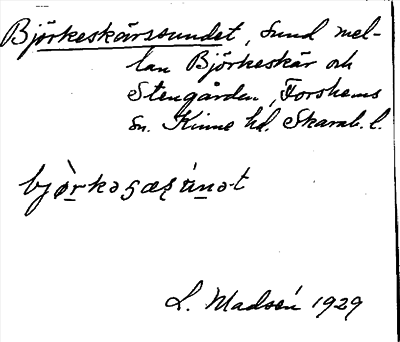 Björkeskärssundet, sund mel-
lan Björkeskär och
Stengården, Forshems
sn. Kinne hd. Skarab. l.
L. Madsén 1929